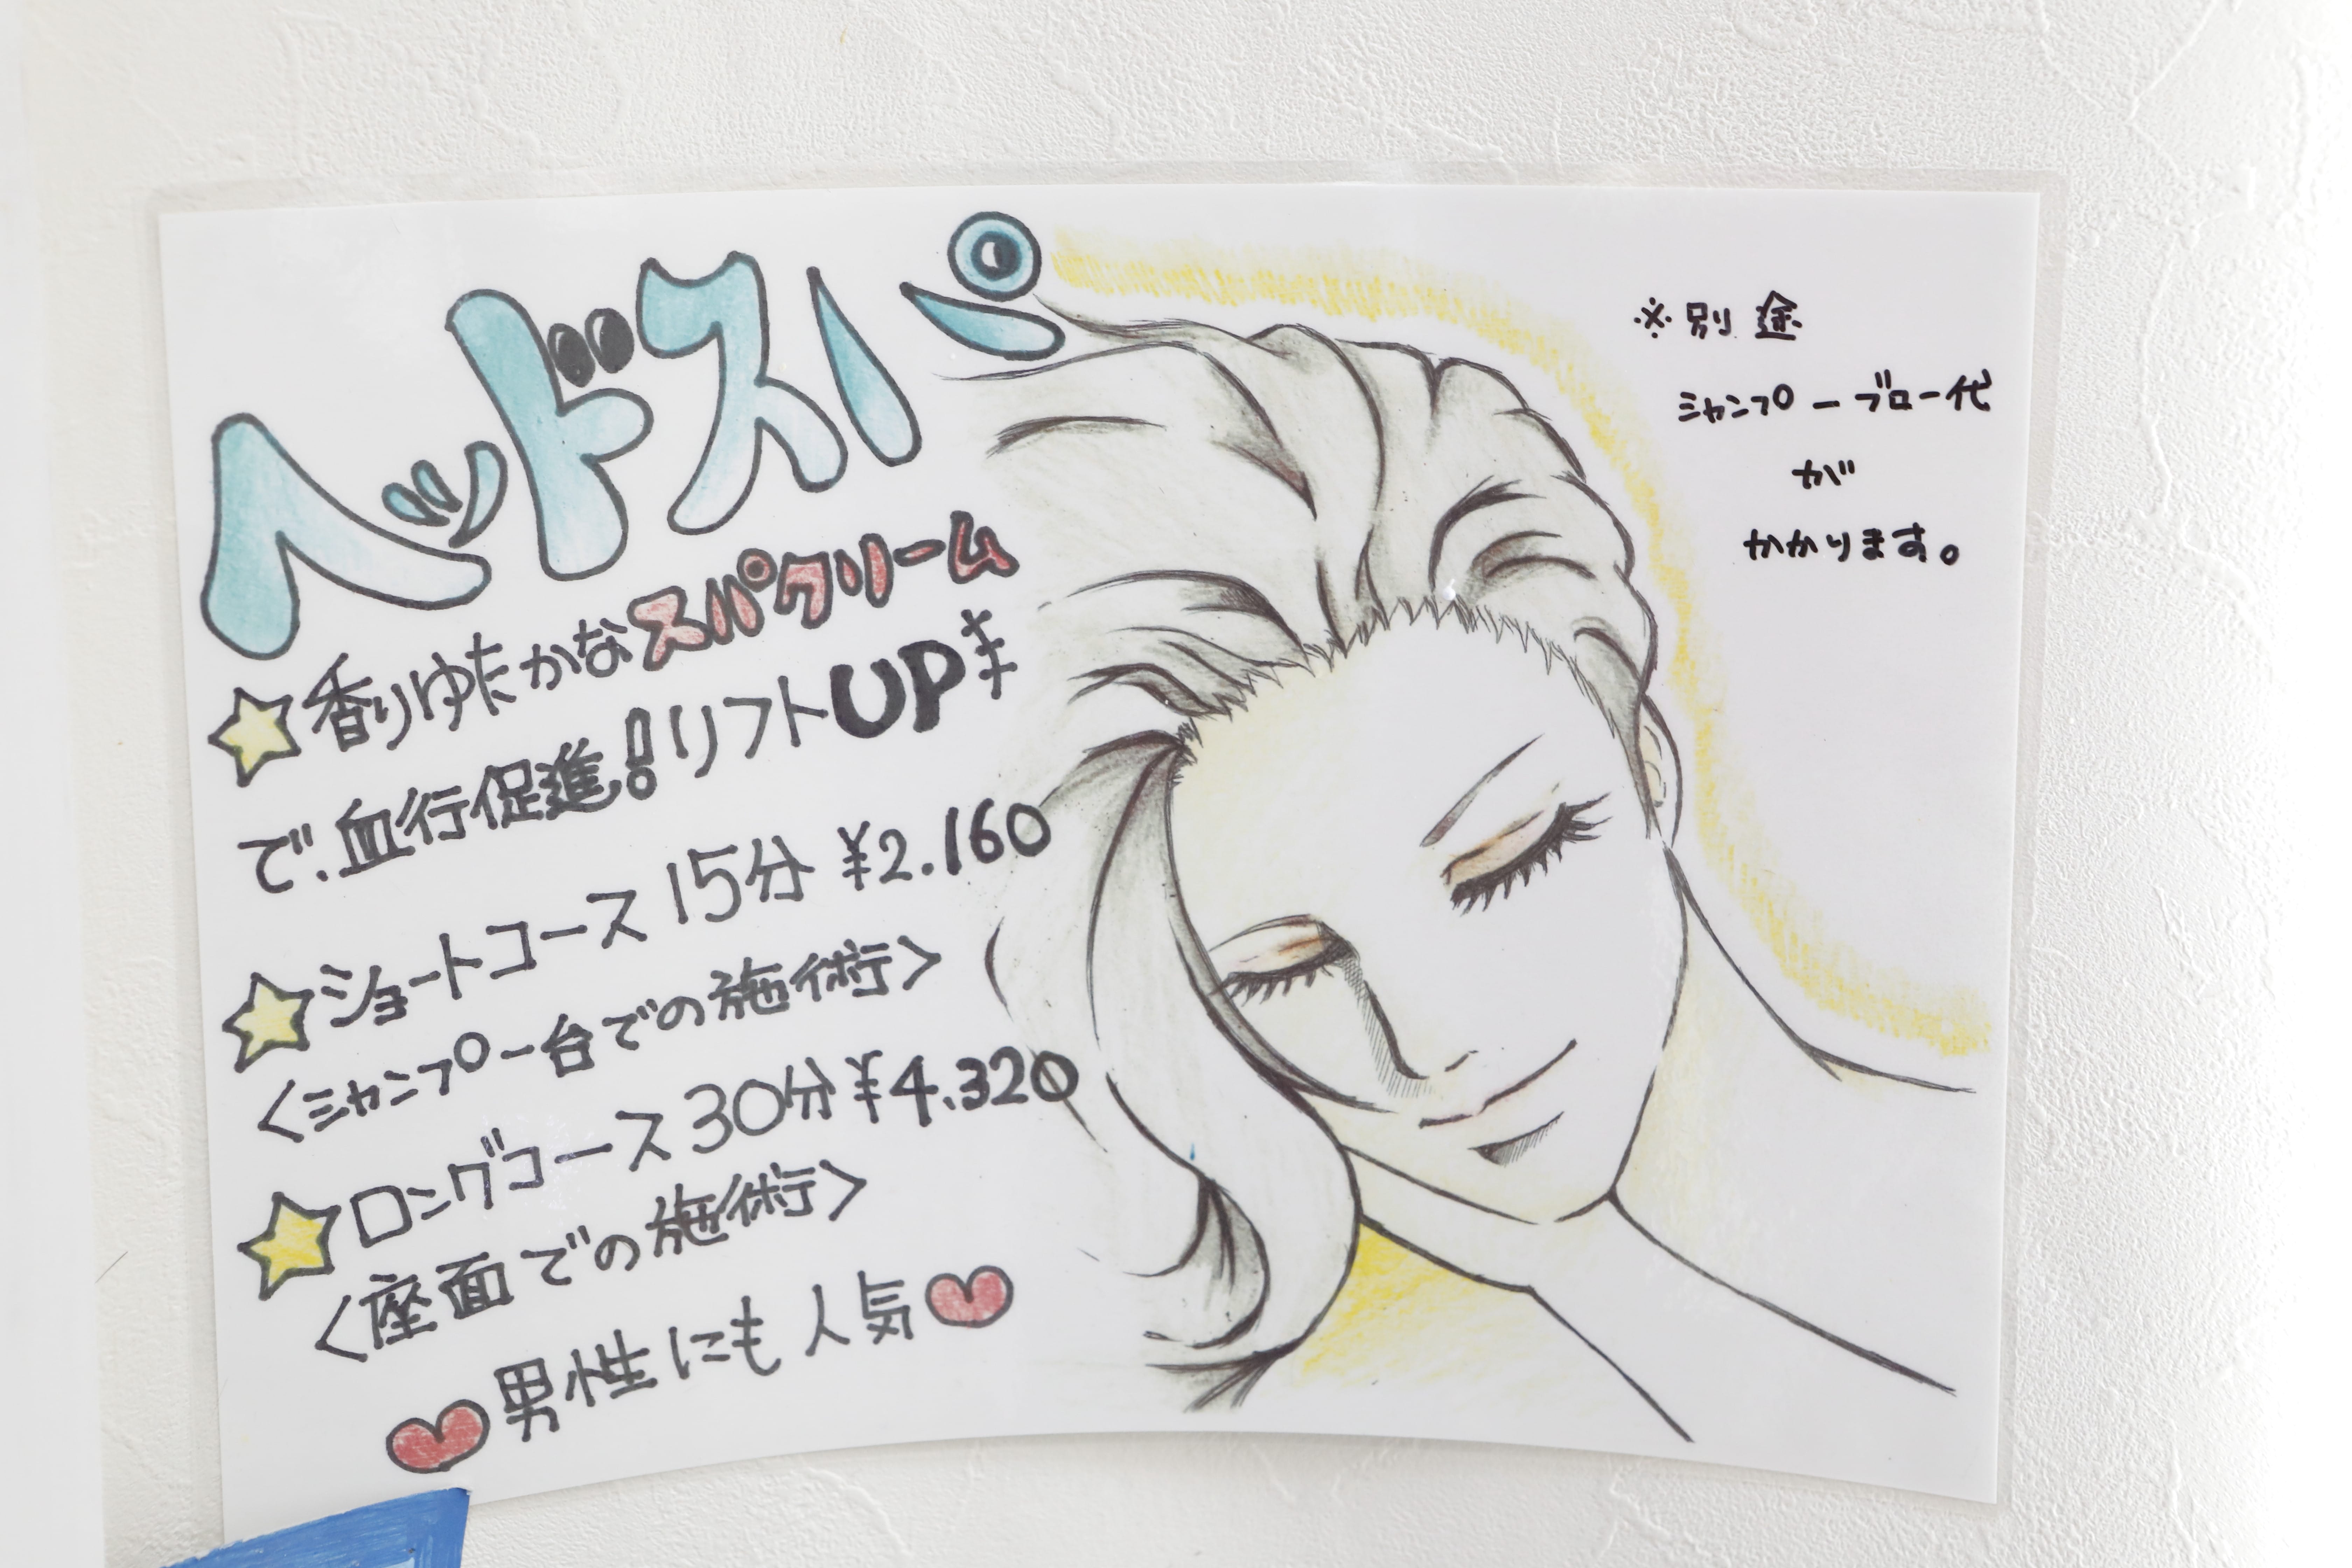 ヘッドスパ
☆香りゆたかなスパクリーム
で、血行促進!!リフトUP
☆ショートコース 15分 ¥2.160
<シャンプー台での施術>
☆ロングコース 30分 ¥4.320
<座面での施術>
♥男性にも人気♥
※別途
シャンプーブロー代
が
かかります。